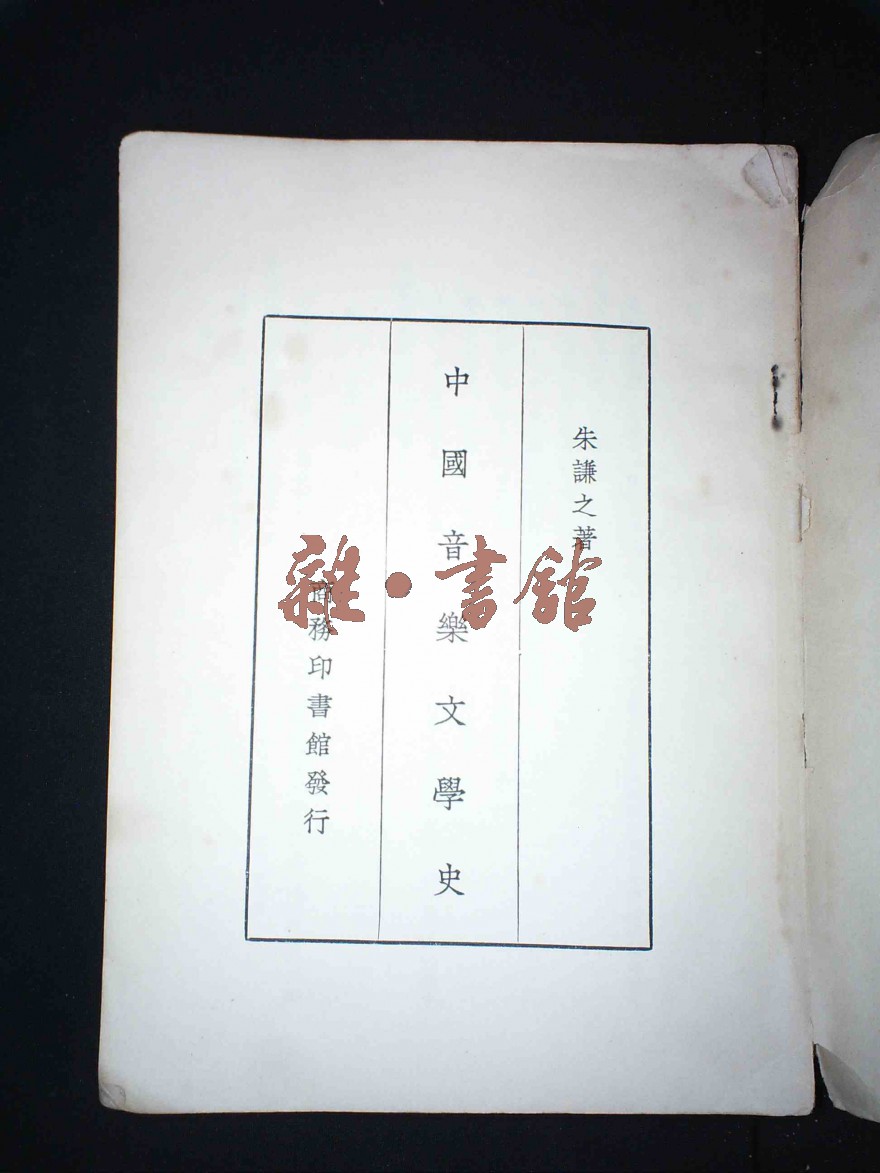 朱謙之著
中國音樂文學史
商務印書館發行
雜·書館